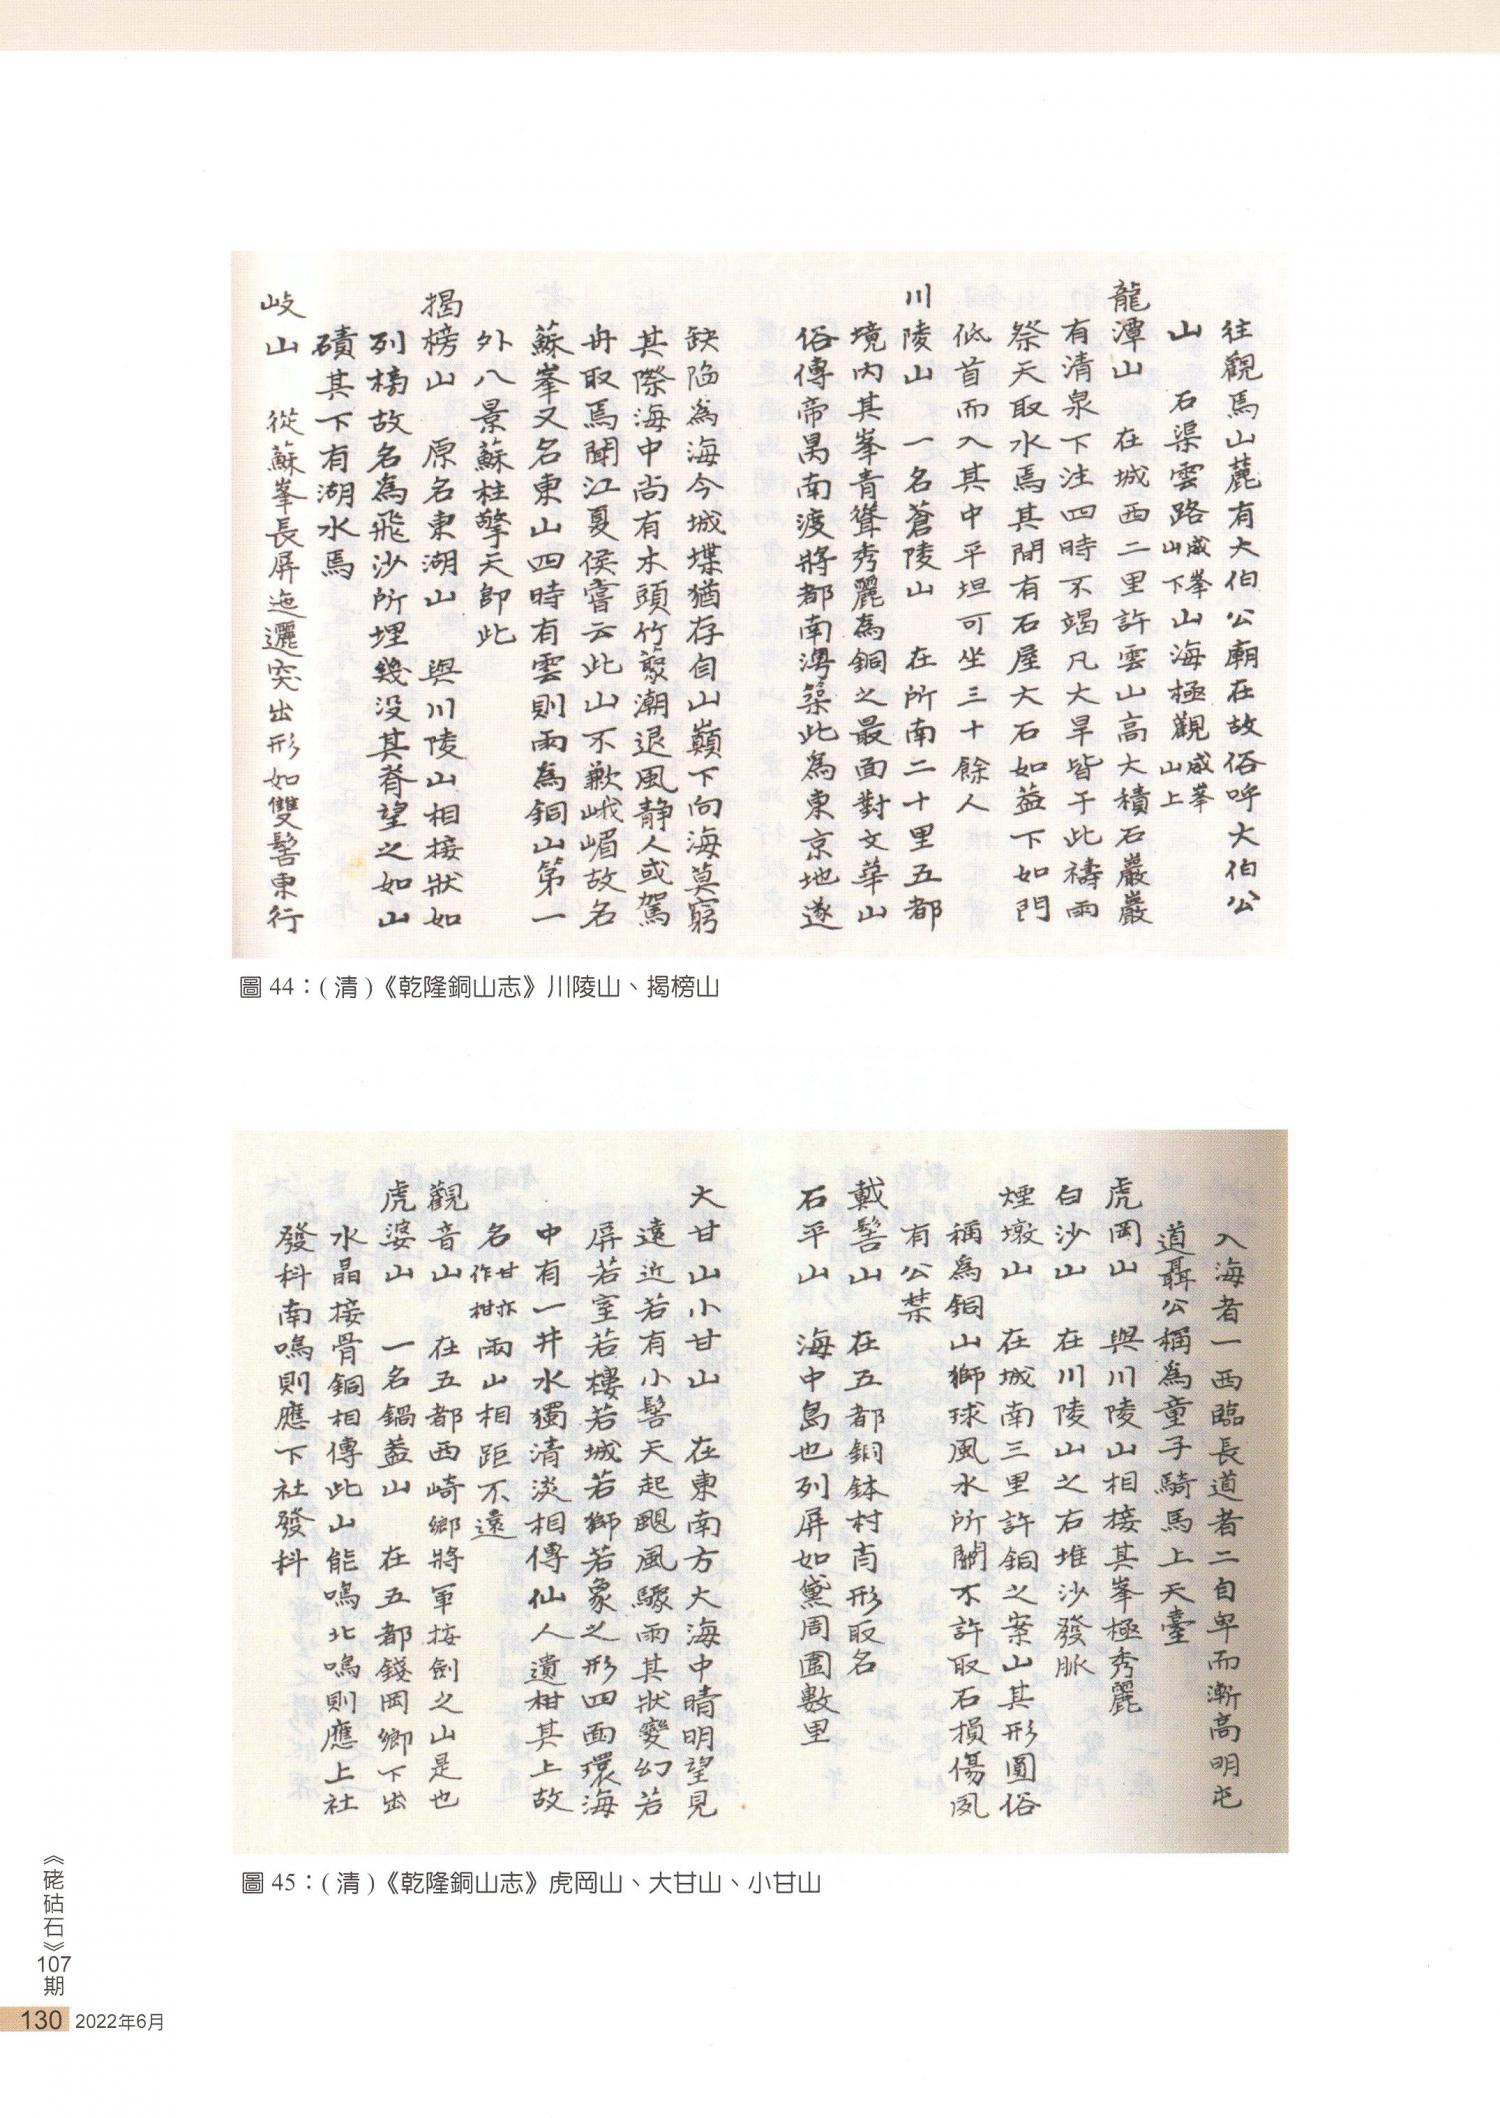 往觀馬山麓有大伯公廟在故俗呼大伯公
山　石渠雲路咸峯山下山海極觀咸峯山上
龍潭山　在城西二里許雲山高大積石巖巖
有清泉下注四時不竭凡大旱皆于此禱雨
祭天取水焉其間有石屋大石如蓋下如門
低首而入其中平坦可坐三十餘人
川陵山　一名蒼陵山　在所南二十里五都
境內其峯青聳秀麗為銅之最面對文華山
俗傳帝昺南渡將都南澳築此為東京地遂
缺陷為海今城堞猶存自山巔下向海莫窮
其際海中尚有木頭竹藂潮退風静人或駕
舟取焉聞江夏侯嘗云此山不歉峨嵋故名
蘇峯又名東山四時有雲則雨為銅山第一
外八景蘇柱擎天即此
揭榜山　原名東湖山　與川陵山相接狀如
列榜故名為飛沙所埋幾没其脊望之如山
磧其下有湖水焉
岐山　從蘇峯長屏迤邐突出形如雙髻東行
圖 44：( 清 )《乾隆銅山志》川陵山、揭榜山
入海者一西臨長道者二自卑而漸高明屯
道聶公稱為童子騎馬上天臺
虎岡山　與川陵山相接其峯極秀麗
白沙山　在川陵山之右堆沙發脈
煙墩山　在城南三里許銅之案山其形圓俗
稱為銅山獅球風水所關不許取石損傷夙
有公禁
戴髻山　在五都銅鉢村肖形取名
石平山　海中島也列屏如黛周圍數里
大甘山小甘山　在東南方大海中晴明望見
遠近若有小髻天起颶風驟雨其狀變幻若
屏若室若樓若城若獅若象之形四面環海
中有一井水獨清淡相傳仙人遺柑其上故
名甘亦作柑兩山相距不遠
觀音山　在五都西崎鄉將軍按劍之山是也
虎婆山　一名鍋蓋山　在五都錢岡鄉下出
水晶接骨銅相傳此山能鳴北鳴則應上社
發科南鳴則應下社發科
圖 45：( 清 )《乾隆銅山志》虎岡山、大甘山、小甘山
《硓𥑮石》107期
130 2022年6月